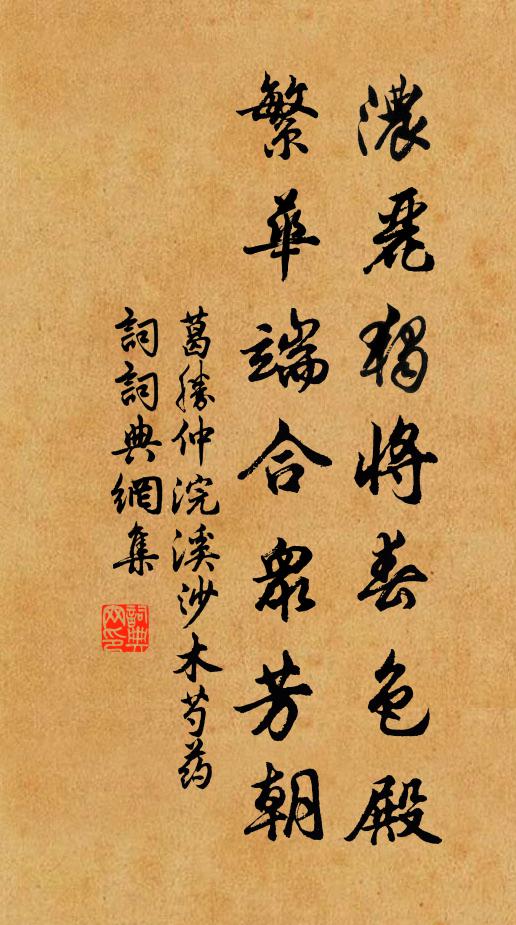 濃麗獨將春色殿
繁華端合眾芳朝
葛勝仲浣溪沙木芍药
詞詞典網集
詞典網印